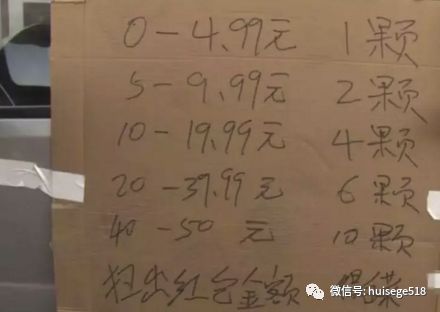 0-4.99元 1颗
5-9.99元 2颗
10-19.99元 4颗
20-39.99元 6颗
40-50元 10颗
扫出红包金额
微信号: huisege518